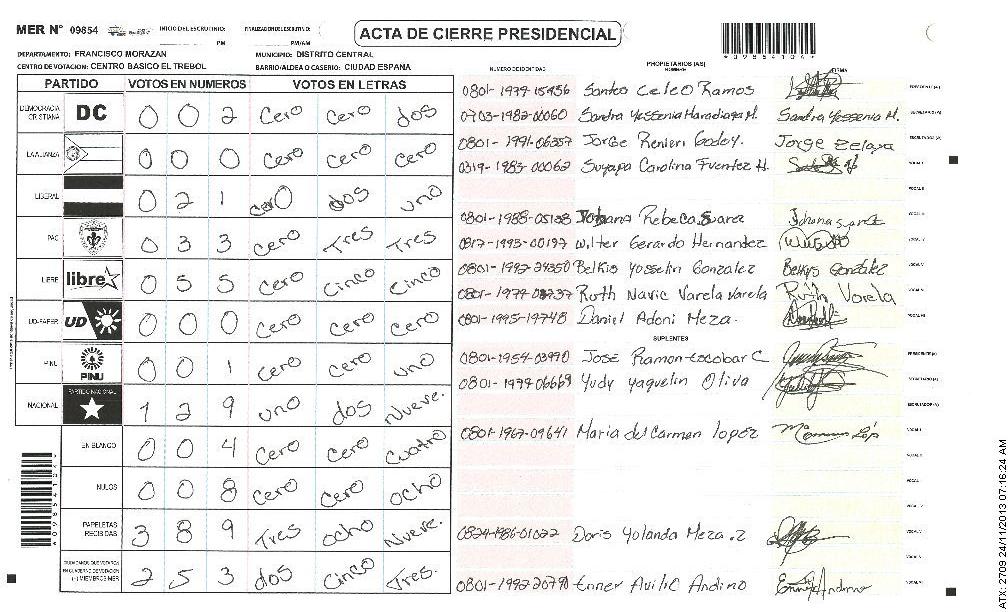 MER N° 09854 INICIO DEL ESCRUTINIO: PM FINALIZACION DEL ESCRUTINIO: PM/AM ACTA DE CIERRE PRESIDENCIAL
*09854104*
DEPARTAMENTO: FRANCISCO MORAZAN MUNICIPIO: DISTRITO CENTRAL
CENTRO DE VOTACION: CENTRO BASICO EL TREBOL BARRIO/ALDEA O CASERIO: CIUDAD ESPANA
PARTIDO VOTOS EN NUMEROS VOTOS EN LETRAS
DEMOCRACIA CRISTIANA DC 0 0 2 Cero Cero dos
LA ALIANZA 0 0 0 Cero Cero Cero
LIBERAL 0 2 1 Cero dos uno
PAC 0 3 3 Cero Tres Tres
LIBRE libre 0 5 5 Cero Cinco Cinco
UD-FAPER UD 0 0 0 Cero Cero Cero
PINU PINU 0 0 1 Cero Cero uno
NACIONAL PARTIDO NACIONAL 1 2 9 uno dos Nueve.
EN BLANCO 0 0 4 Cero Cero Cuatro
NULOS 0 0 8 Cero Cero ocho
PAPELETAS RECIBIDAS 3 8 9 Tres ocho Nueve.
CIUDADANOS QUE VOTARON EN CUADERNO DE VOTACION (+) MIEMBROS MER 2 5 3 dos Cinco Tres.
NUMERO DE IDENTIDAD PROPIETARIOS (AS) NOMBRE FIRMA
0801-1979-15456 Santos Celeo Ramos PRESIDENTE (A)
0703-1982-00060 Sandra Yessenia Maradiaga M. Sandra Yessenia M. SECRETARIO (A)
0801-1991-06357 Jorge Renieri Godoy. Jorge Zelaya ESCRUTADOR (A)
0319-1983-00062 Suyapa Carolina Fuentez H. VOCAL I
VOCAL II
0801-1988-05138 Johana Rebeca Suarez VOCAL III
0817-1993-00197 Wilter Gerardo Hernandez VOCAL IV
0801-1992-24350 Belkis Yosselin Gonzalez Belkys Gonzalez VOCAL V
0801-1979-03737 Ruth Navic Varela Varela Ruth Varela VOCAL VI
0801-1995-19748 Daniel Adoni Meza. VOCAL VII
SUPLENTES
0801-1954-03990 José Ramon Escobar C PRESIDENTE (A)
0801-1979-06669 Yudy Yaquelin Oliva SECRETARIO (A)
ESCRUTADOR (A)
0801-1967-09641 Maria del Carmen lopez VOCAL I
VOCAL II
0824-1986-01022 Doris Yolanda Meza .z VOCAL V
0801-1992-20790 Enner Avilic Andino VOCAL VII
*09854104*
ATX 2709 24/11/2013 07:16:24 AM